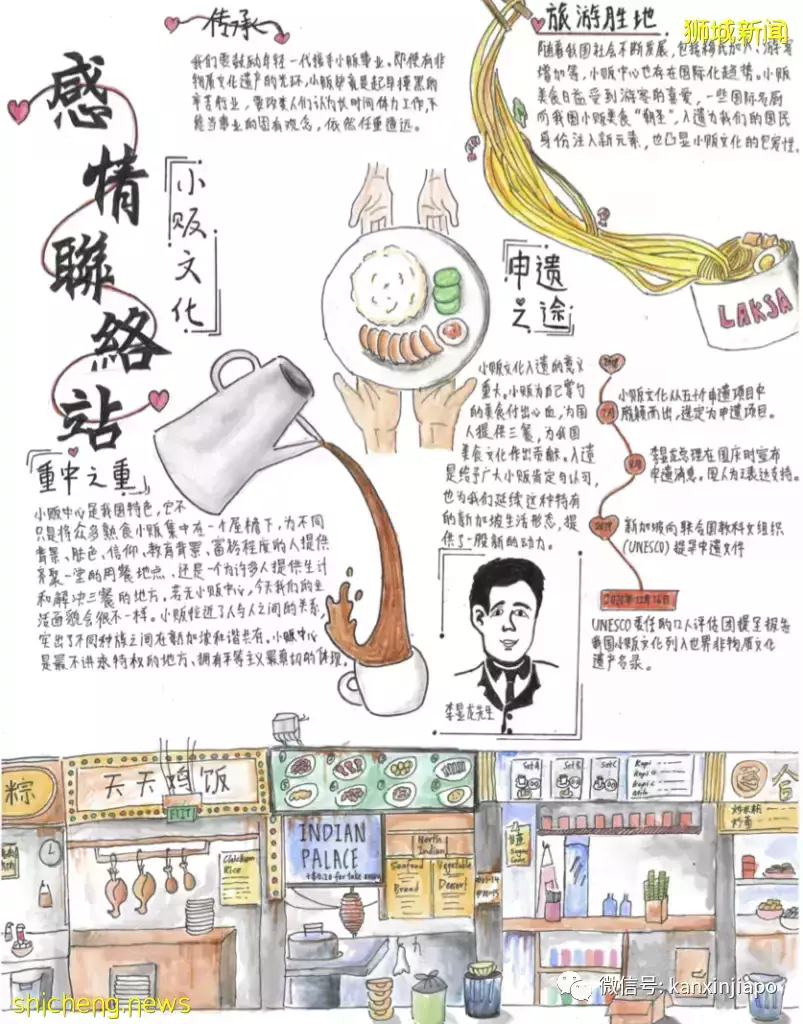 狮城新闻
感情聯絡站
小贩文化
传承
我们要鼓励年轻一代接手小贩事业。即便有非
物质文化遗产的光环,小贩毕竟是起早摸黑的
辛苦行业,要改变人们认为长时间体力工作,不
能当事业的固有观念,依然任重道远。
旅游胜地
随着我国社会不断发展,包括移民加入、游客
增加等,小贩中心也存在国际化趋势。小贩
美食日益受到游客的喜爱,一些国际名厨
向我国小贩美食“朝圣”。入遗为我们的国民
身份注入新元素,也凸显小贩文化的包容性。
LAKSA
申遗之途
小贩文化入遗的意义
重大。小贩为自己掌勺
的美食付出心血,为国
人提供三餐,为我国
美食文化作出贡献。入遗
是给予广大小贩肯定与认可,
也为我们延续这种特有
的新加坡生活形态,提
供了一股新的动力。
2018
7月
小贩文化从五十个申遗项目中
脱颖而出,选定为申遗项目。
8月
李显龙总理在国庆时宣布
申遗消息。国人为之表达支持。
2019
新加坡向联合国教科文组织
(UNESCO)提呈申遗文件
2020年12月16日
UNESCO委任的12人评估团提呈报告
我国小贩文化列入世界非物质文化
遗产名录。
重中之重
小贩中心是我国特色,它不
只是将众多熟食小贩集中在一个屋檐下,为不同
背景、肤色、信仰、教育背景、富裕程度的人提供
齐聚一堂的用餐地点、还是一个为许多人提供生计
和解决三餐的地方。若无小贩中心,今天我们的生
活面貌会很不一样。小贩促进了人与人之间的关系,
突出了不同种族之间在新加坡和谐共存。小贩中心
是最不讲求特权的地方、拥有平等主义最真切的体现。
李显龙先生
粽
天天鸡饭
EXIT
Chicken
Rice
INDIAN
PALACE
+$0.20 for take away
North
Indian
Seafood
Vegetable
Bread
Dessert
Set A
Set B
Set C
Kopi
Kopi O
Kopi C
Milo
甘蔗
合
炒米粉
炒面
微信号: kanxinjiapo
shicheng.news